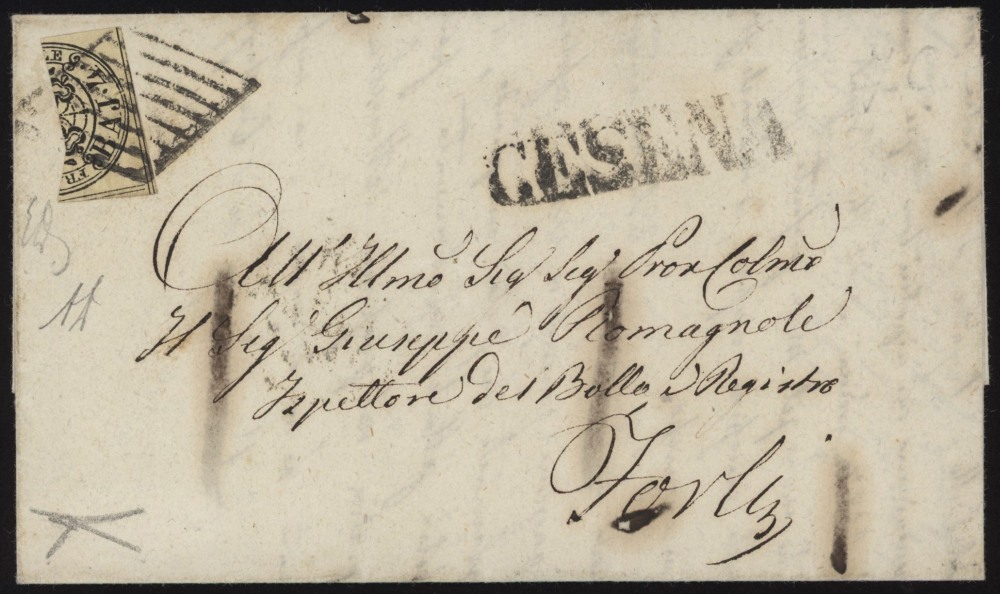 CESENA
All' Illmo Sig Sig Pron Colmo
Il Sig Giuseppe Romagnole
Ispettore del Bollo e Registro
Forlì